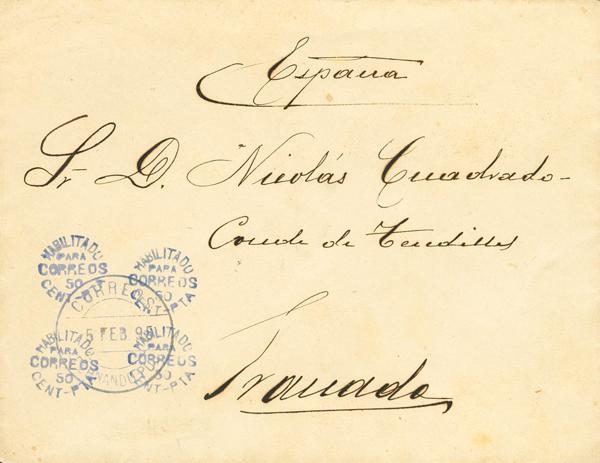 España
Sr. D. Nicolás Cuadrado-
Conde de Tendillas
Granada
HABILITADO
PARA
CORREOS
50
CENT-PTA
HABILITADO
PARA
CORREOS
50
CENT-PTA
HABILITADO
PARA
CORREOS
50
CENT-PTA
HABILITADO
PARA
CORREOS
50
CENT-PTA
CORREOS
5 FEB 99